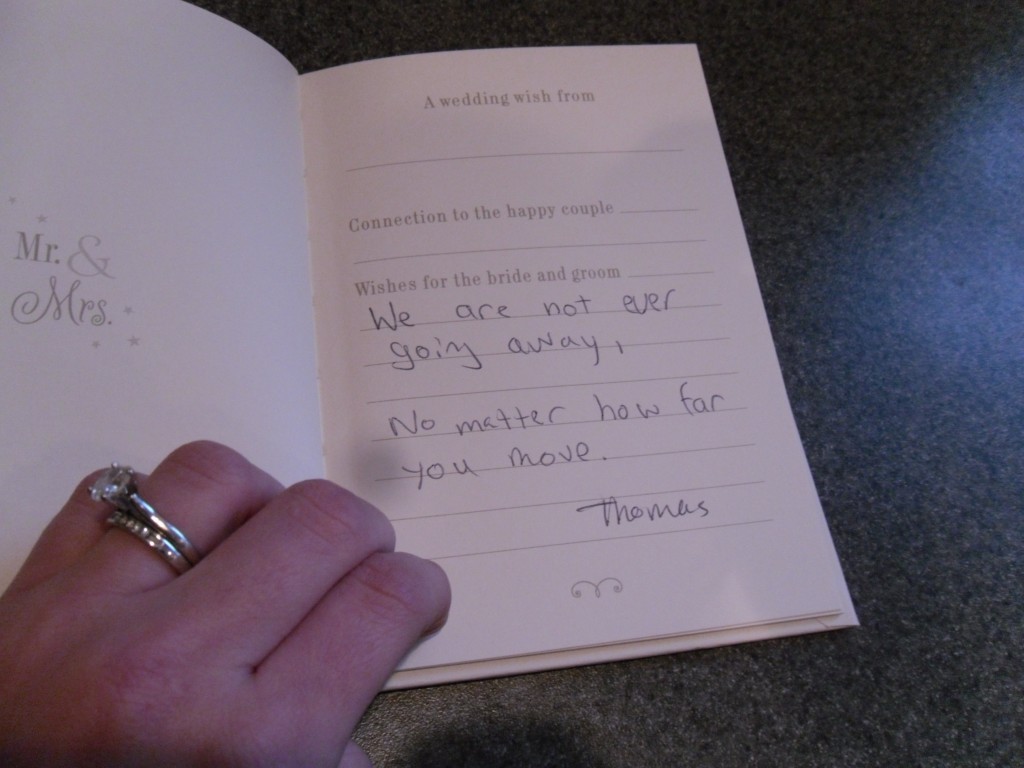 Mr. &
Mrs.
A wedding wish from
Connection to the happy couple
Wishes for the bride and groom
We are not ever
going away,
No matter how far
you move.
Thomas